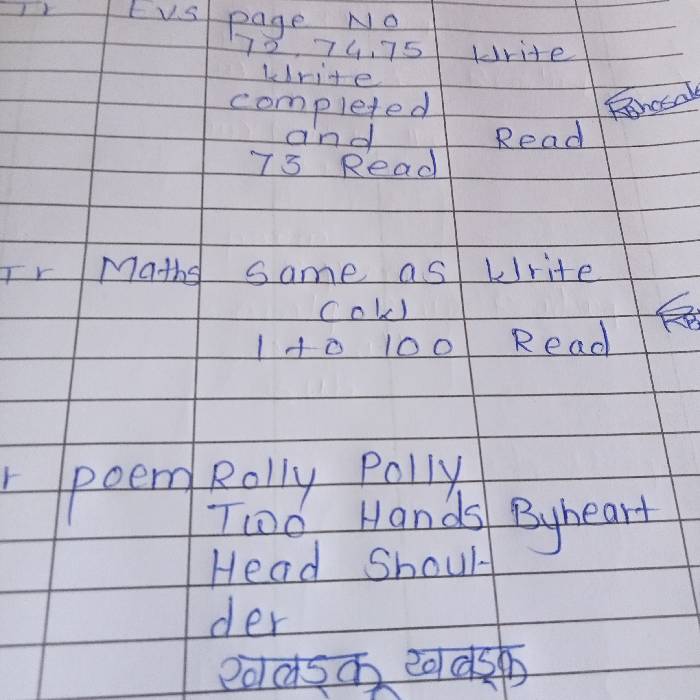 Tr Evs page No
72, 74, 75 Write
Write
completed
and Read
73 Read
Tr Maths Same as Write
(ok)
1 to 100 Read
r poem Rolly Polly
Two Hands Byheart
Head Shoul-
der